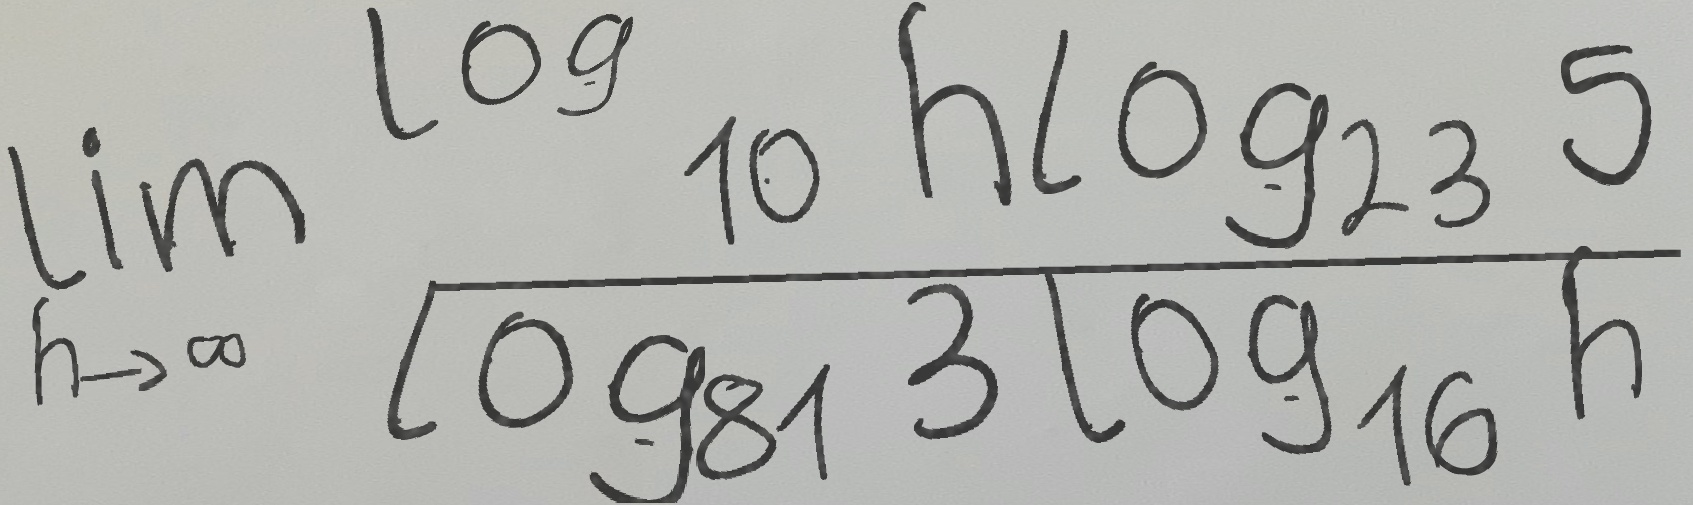 lim h→∞ log₁₀ h log₂₃ 5
log₈₁ 3 log₁₆ h